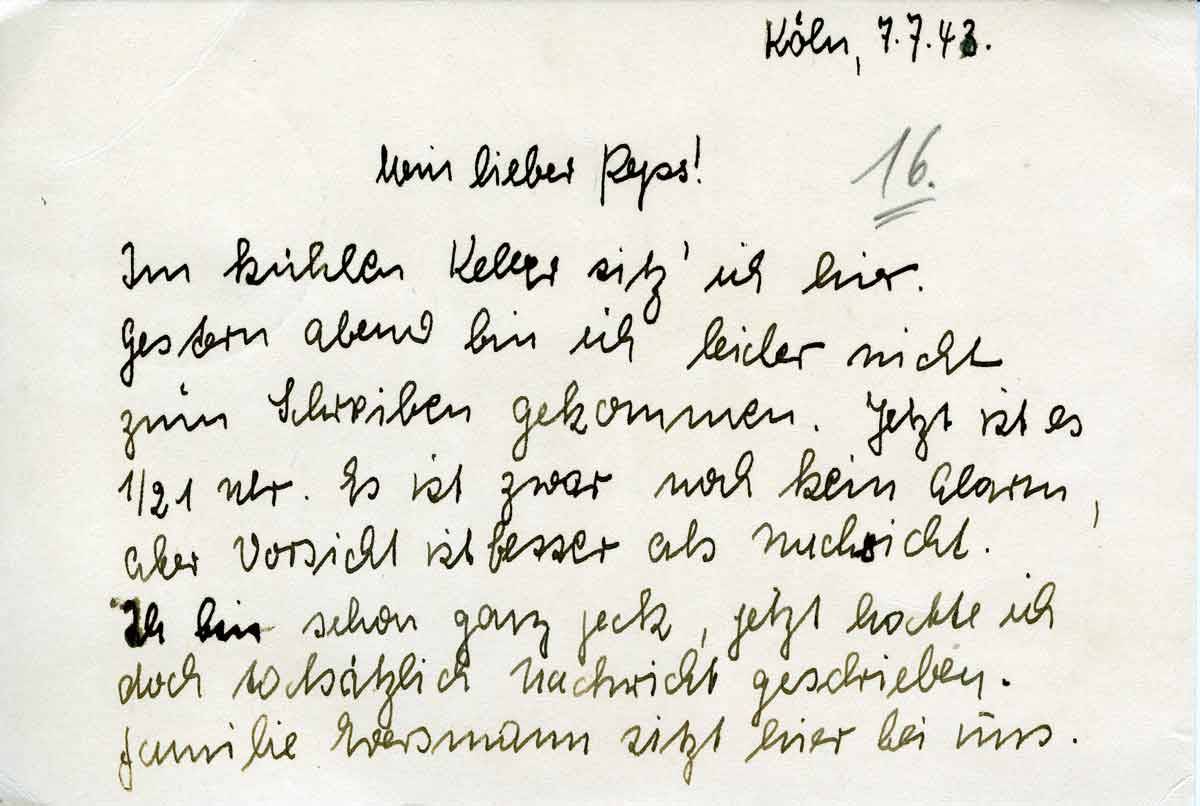 Köln, 7.7.43.
Mein lieber Peps!
16.
Im kühlen Keller sitz' ich hier.
Gestern abend bin ich leider nicht
zum Schreiben gekommen. Jetzt ist es
1/21 Uhr. Es ist zwar noch kein Alarm,
aber Vorsicht ist besser als Nachsicht.
Ich bin schon ganz jeck, jetzt hatte ich
doch tatsätzlich Nachricht geschrieben.
Familie Eversmann sitzt hier bei uns.